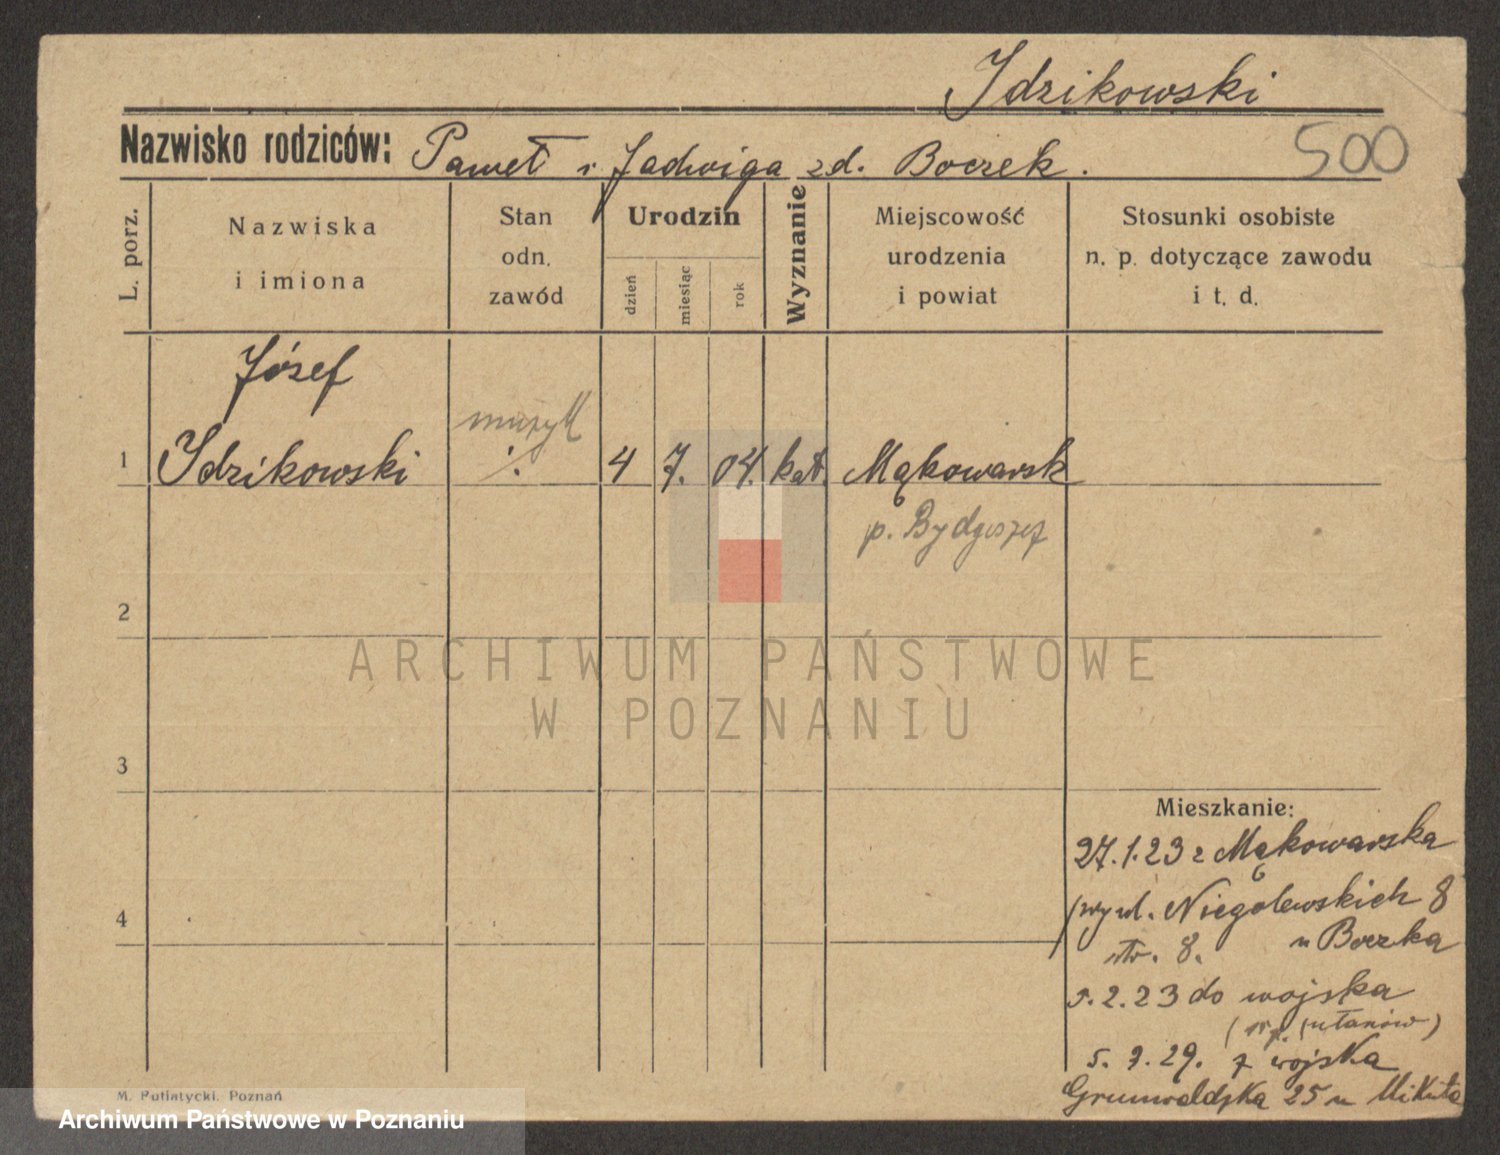 Idzikowski
Nazwisko rodziców: Paweł i Jadwiga zd. Boczek.
500
L. porz.
Nazwiska
i imiona
Stan
odn.
zawód
Urodzin
dzień
miesiąc
rok
Wyznanie
Miejscowość
urodzenia
i powiat
Stosunki osobiste
n. p. dotyczące zawodu
i t. d.
Józef
muzyk
1 Idzikowski 4 7. 04. kat. Mąkowarsk
p. Bydgoszcz
2
ARCHIWUM PAŃSTWOWE
W POZNANIU
3
Mieszkanie:
27.1.23 z Mąkowarska
Niegolewskich 8
4
str. 8. u Boczka
5.2.23 do wojska
(15 p. ułanów)
5. 7. 29. z wojska
Grunwaldzka 25 u Mikuła
M. Putiatycki. Poznań
Archiwum Państwowe w Poznaniu